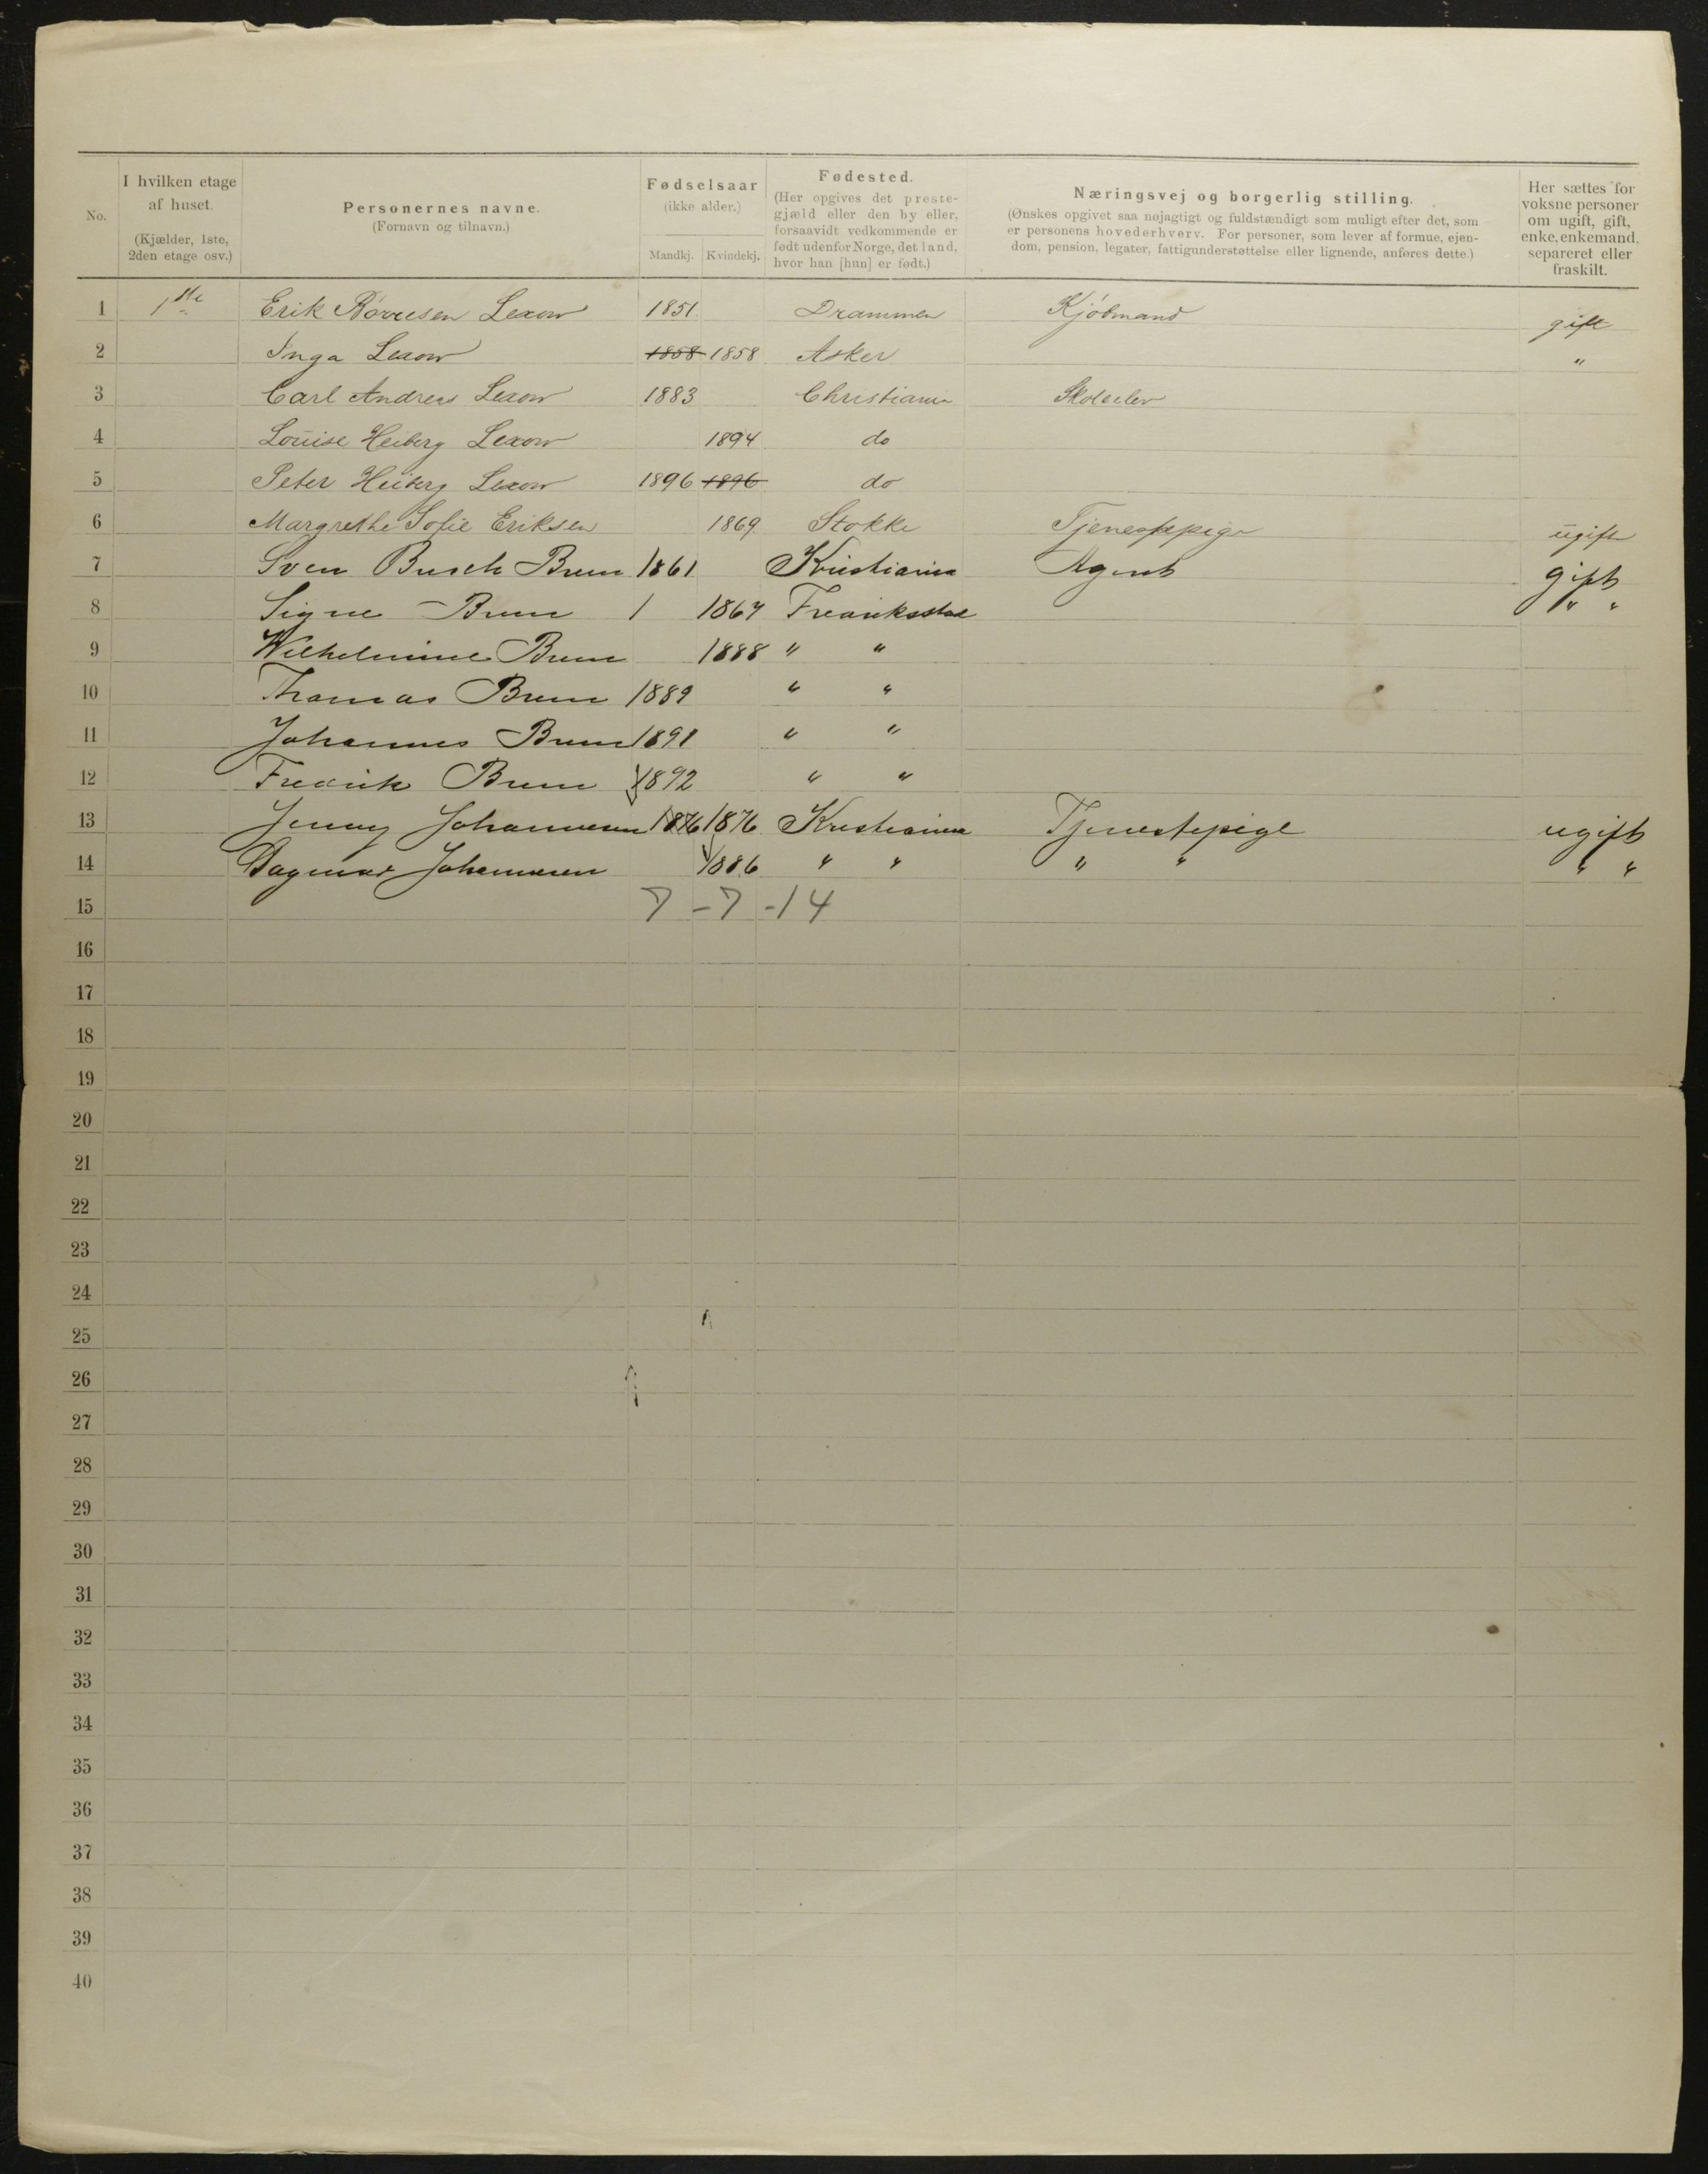 No. | I hvilken etage af huset. (Kjælder, 1ste, 2den etage osv.) | Personernes navne. (Fornavn og tilnavn.) | Fødselsaar (ikke alder.) Mandkj. Kvindekj. | Fødested. (Her opgives det prestegjæld eller den by eller, forsaavidt vedkommende er født udenfor Norge, det land, hvor han [hun] er født.) | Næringsvej og borgerlig stilling. (Ønskes opgivet saa nøjagtigt og fuldstændigt som muligt efter det, som er personens hovederhverv. For personer, som lever af formue, ejendom, pension, legater, fattigunderstøttelse eller lignende, anføres dette.) | Her sættes for voksne personer om ugift, gift, enke, enkemand, separeret eller fraskilt.
1 1ste Erik Børresen Lexow 1851 Drammen Kjøbmand gift
2 Inga Lexow 1858 1858 Asker "
3 Carl Andreas Lexow 1883 Christiania Skoleelev
4 Louise Heiberg Lexow 1894 do
5 Peter Heiberg Lexow 1896 1896 do
6 Margrethe Sofie Eriksen 1869 Stokke Tjenestepige ugift
7 Sven Busch Brun 1861 Kristiania Agent gift
8 Signe Brun 1 1867 Fredrikstad " "
9 Wilhelmine Brun 1888 " "
10 Thomas Brun 1889 " "
11 Johannes Brun 1891 " "
12 Fredrik Brun 1892 " "
13 Jenny Johannesen 1876 1876 Kristiania Tjenestepige ugift
14 Dagmar Johannesen 1886 " " " " " "
15 7 - 7 - 14
16
17
18
19
20
21
22
23
24
25
26
27
28
29
30
31
32
33
34
35
36
37
38
39
40